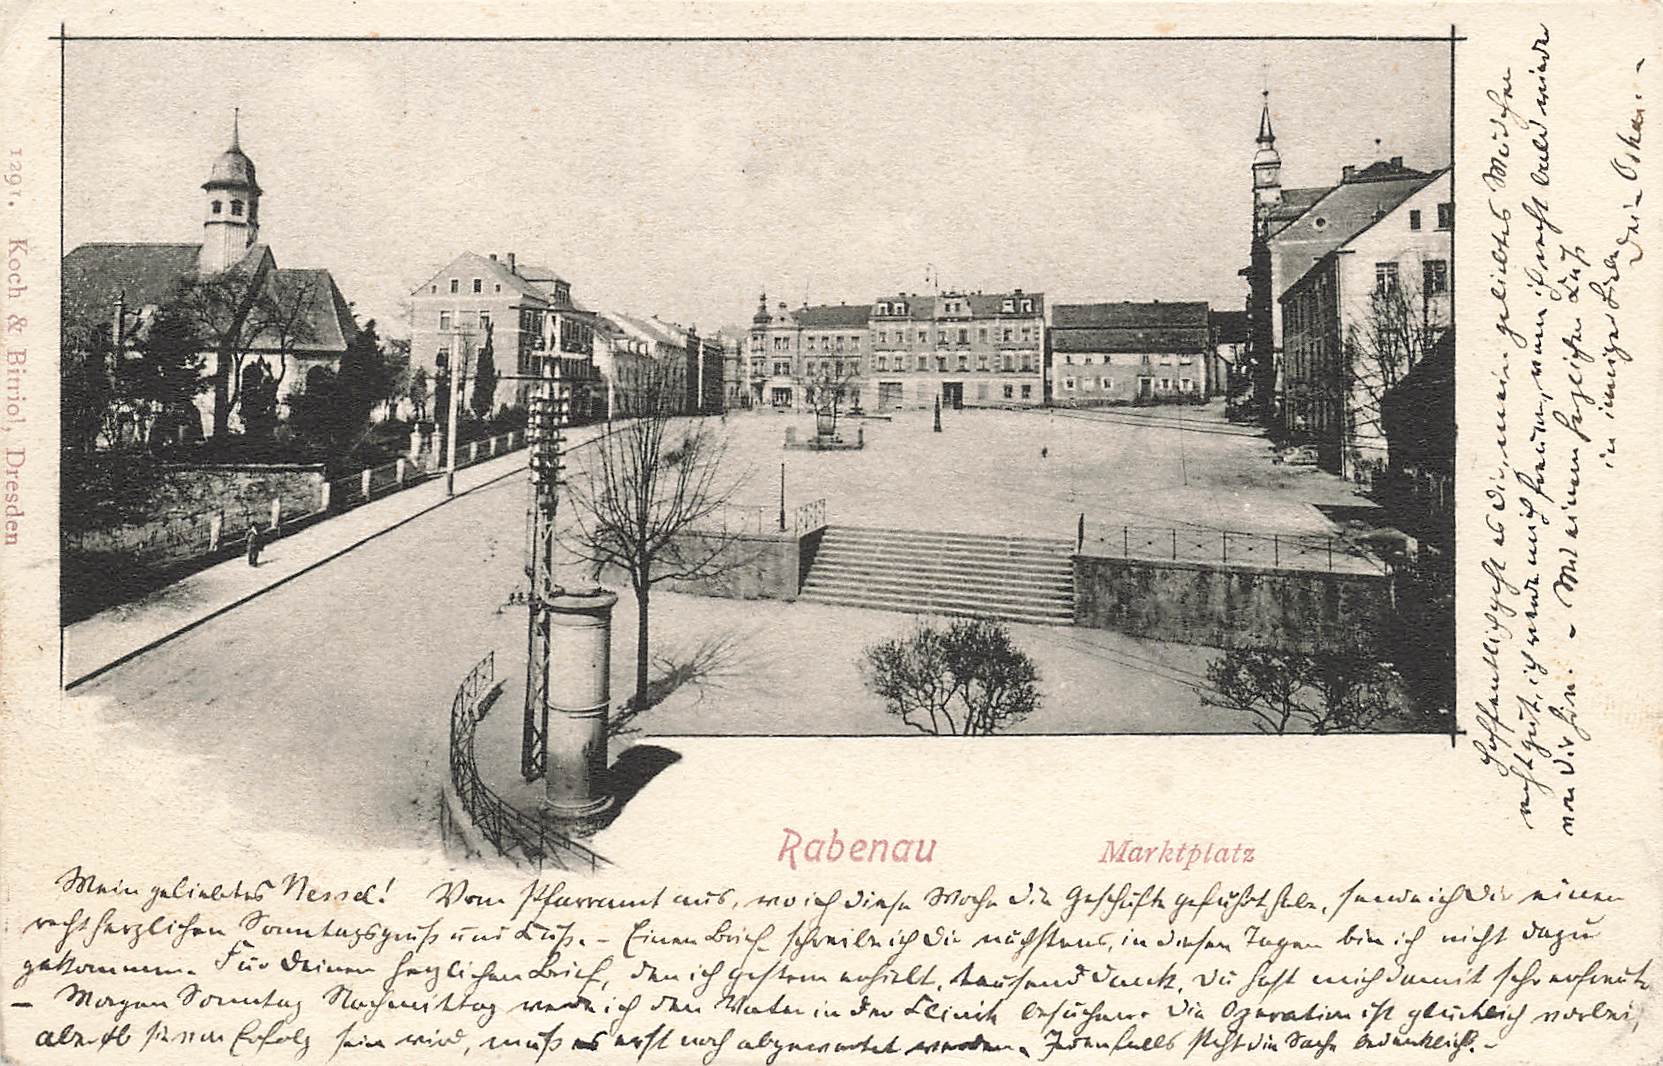 1291. Koch & Bitriol, Dresden
Rabenau Marktplatz
Mein geliebtes Nessel! Vom Pfarramt aus, wo ich diese Woche die Geschäfte geführt habe, sende ich Dir einen
recht herzlichen Sonntagsgruß und Kuß. – Einen Brief schreibe ich Dir nächstens, in diesen Tagen bin ich nicht dazu
gekommen. Für Deinen herzlichen Brief, den ich gestern erhielt, tausend Dank, Du hast mich damit sehr erfreut.
– Morgen Sonntag Nachmittag werde ich den Vater in der Klinik besuchen. Die Operation ist glücklich vorbei,
aber ob sie von Erfolg sein wird, muß es erst noch abgewartet werden. Jedenfalls steht die Sache bedenklich. –
Hoffentlich geht es Dir, mein geliebtes Mädchen
recht gut, ich werde mich freuen, wenn ich recht bald wieder
von Dir höre. – Mit einem herzlichen Kuß
in inniger Liebe
Dein Oskar. –